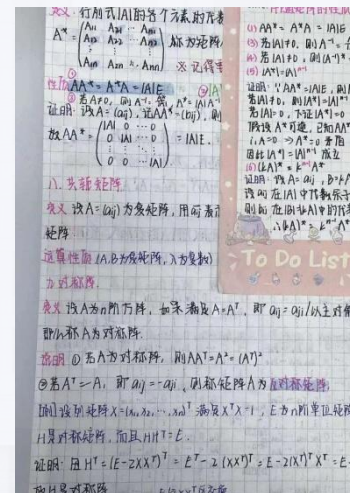 定义: 行列式|A|的各个元素的代数
A* = (A₁₁ A₂₁ … Aₙ₁
A₁₂ A₂₂ … Aₙ₂
⋮ ⋮ ⋮
A₁ₙ A₂ₙ … Aₙₙ) 称为矩阵
※记得
性质① AA* = A*A = |A|E
②若A≠0, 则A⁻¹
证明: 设A=(aij), 记AA*=(bij), 则
故AA* = (|A| 0 … 0
0 |A| … 0
⋮ ⋮ ⋮
0 0 … |A|) = |A|E.
八. 共轭矩阵
定义 设A=(aij)为复矩阵, 用āij表示
矩阵.
运算性质 (A,B为复矩阵, λ为复数)
九. 对称阵.
定义 设A为n阶方阵, 如果满足A=Aᵀ, 即aij=aji(以主对角
即A称A为对称阵.
说明 ①若A为对称阵, 则AAᵀ=A²=(Aᵀ)²
②若Aᵀ=-A, 即aij=-aji, 则称矩阵A为反对称矩阵
[例] 设列矩阵X=(x₁,x₂,…,xₙ)ᵀ满足XᵀX=1, E为n阶单位矩阵
H是对称矩阵, 而且HHᵀ=E.
证明: 因Hᵀ=(E-2XXᵀ)ᵀ=Eᵀ-2(XXᵀ)ᵀ=E-2(Xᵀ)ᵀXᵀ=E-
故H是对称阵
(1) AA* = A*A = |A|E
(3) 若|A|≠0, 则A⁻¹=
(5) |A*|=|A|ⁿ⁻¹
证明: ∵AA*=|A|E, 则
若|A|≠0, 则|A*|=|A|ⁿ⁻¹
若|A|=0, 下证|A*|=0
假设A*可逆, 已知AA*
∴A=0 → A*=0 矛盾
因此|A*|=|A|ⁿ⁻¹成立
(6) (kA)* = kⁿ⁻¹A*
证明: 设A=aij, B=kA
To Do List